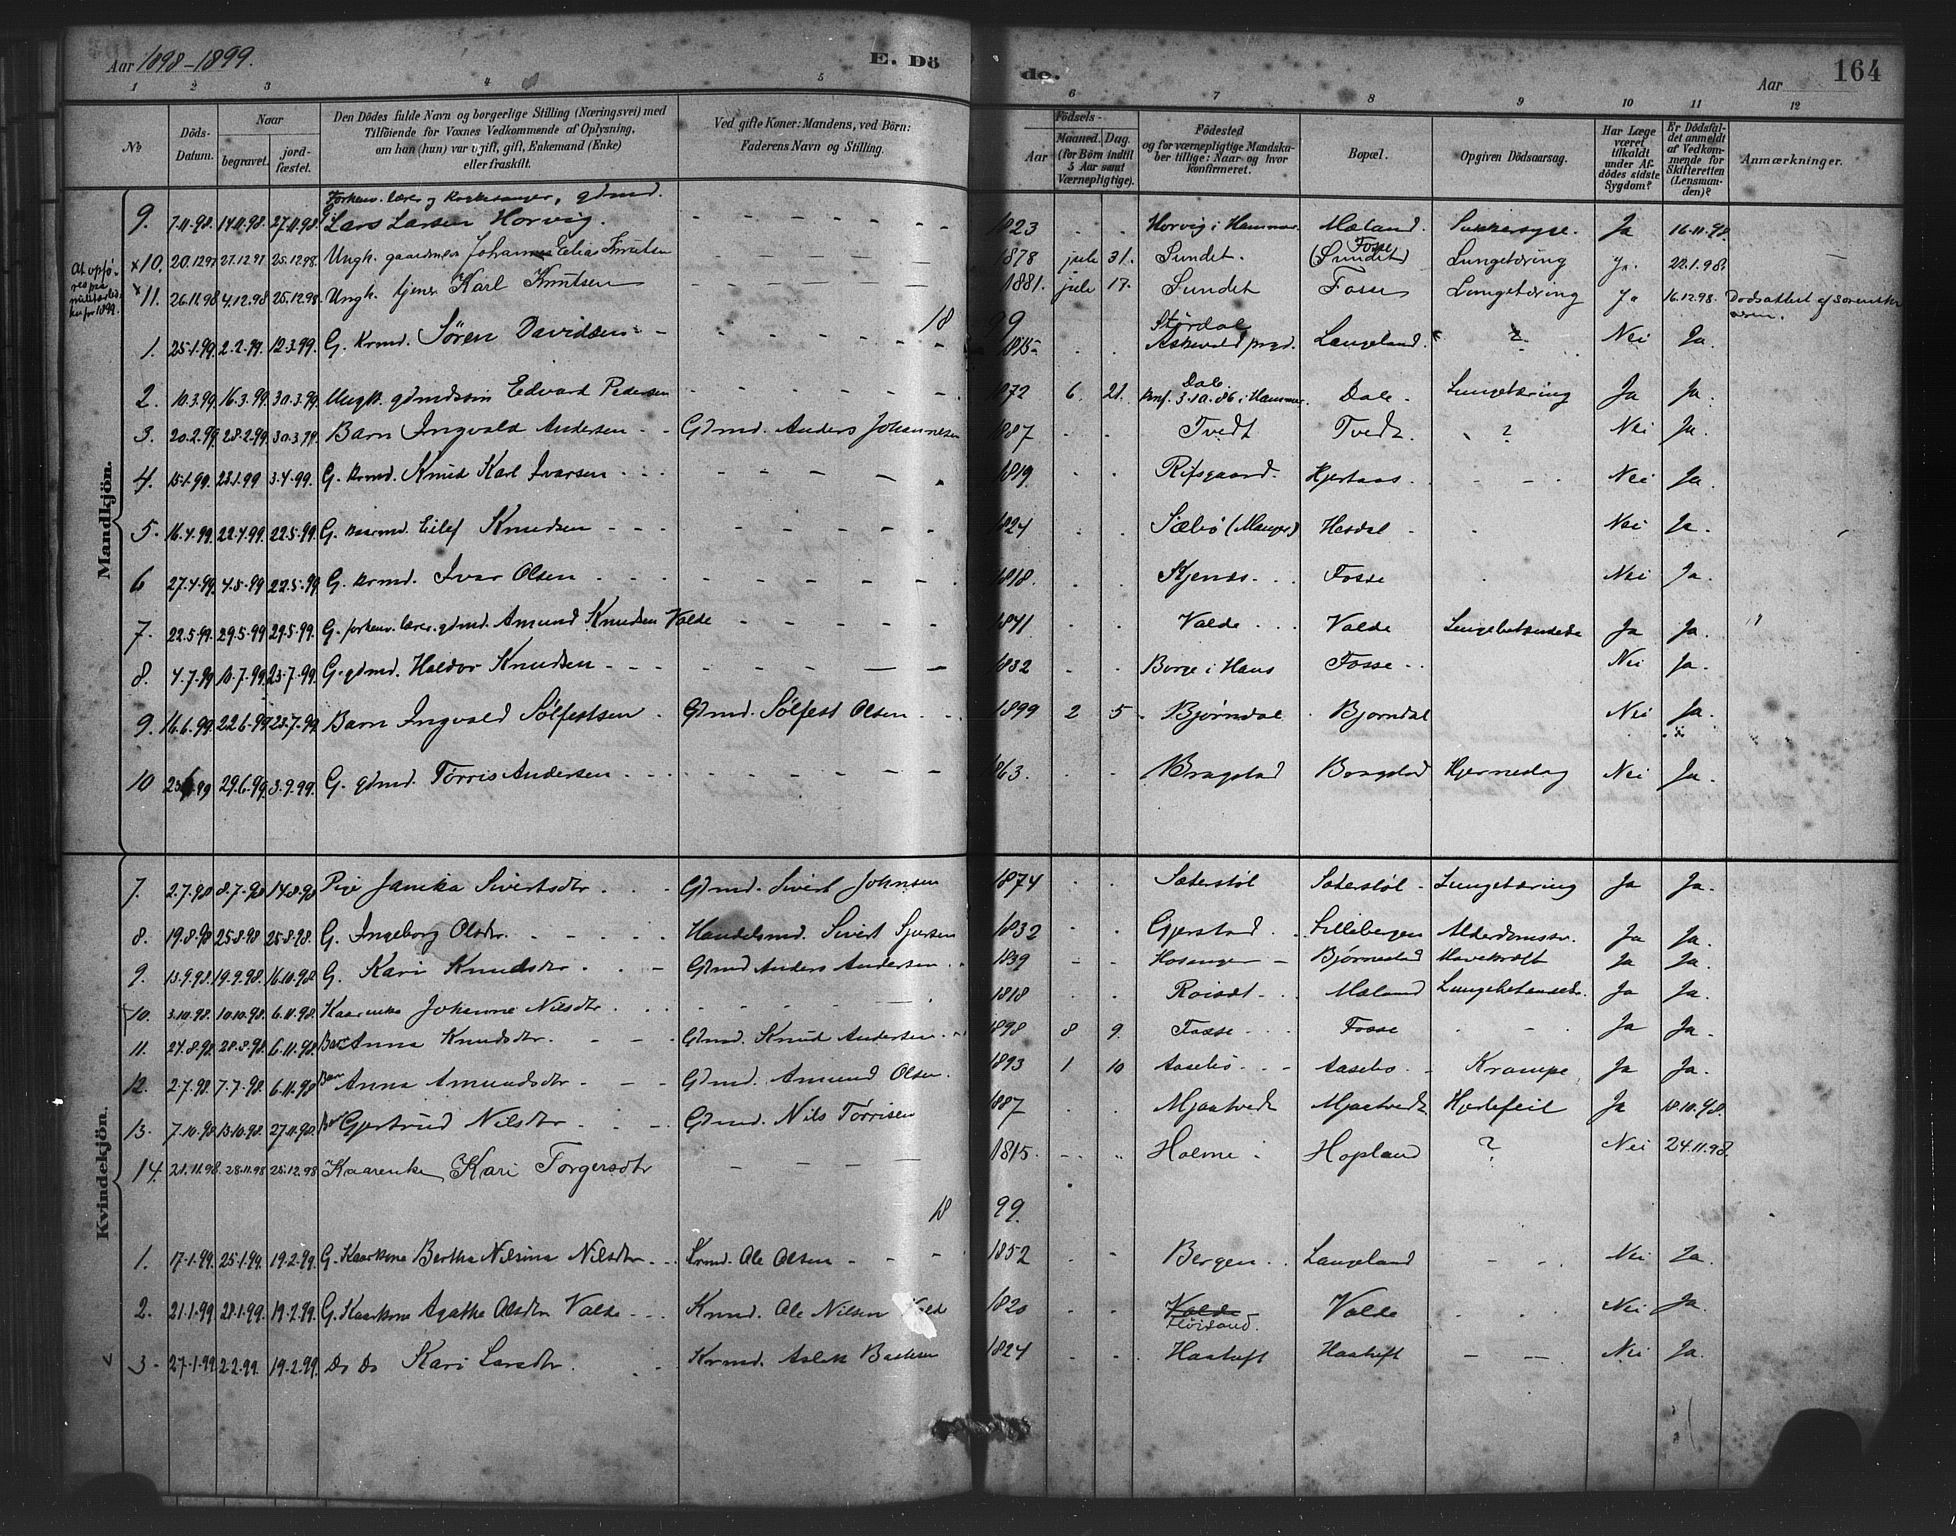 Aar 1898-1899. E. Dö de. Aar 164
1 2 3 4 5 6 7 8 9 10 11 12
No Döds-Datum. Naar begravet. jord-fæstet. Den Dödes fulde Navn og borgerlige Stilling (Næringsvei) med Tilföiende for Voxnes Vedkommende af Oplysning, om han (hun) var ugift, gift, Enkemand (Enke) eller fraskilt. Ved gifte Koner: Mandens, ved Börn: Faderens Navn og Stilling. Födsels- Aar Maaned. Dag. (for Börn indtil 5 Aar samt Værnepligtige). Födested og for værnepligtige Mandskaber tillige: Naar og hvor konfirmeret. Bopæl. Opgiven Dödsaarsag. Har Læge været tilkaldt under Afdödes sidste Sygdom? Er Dödsfaldet anmeldt af Vedkommende for Skifteretten (Lensmanden)? Anmærkninger.
Mandkjön.
9. 7.11.98. 14.11.98. 27.11.98. Forhenv. lærer og kirkesanger, gdmd. Lars Larsen Horvig. 1823 Horvig i Hammer. Mæland. Sukkersyge. Ja 16.11.98.
x10. 20.12.97 27.12.97 25.12.98. Ungk. gaardmdss Johannes Elias Knutsen 1878 jule 31. Sundet. Fosse (Sundet) Lungetæring Ja. 22.1.98.
x11. 26.11.98 4.12.98 25.12.98. Ungk. tjener Karl Knutsen 1881. jule 17. Sundet Fosse Lungetæring Ja 16.12.98. Dødsattest af
18 99
1. 25.1.99. 2.2.99. 12.3.99. G. krmd. Søren Davidsen 1815 Stordal Askevold prgd. Langeland. ? Nei Ja.
2. 10.3.99. 16.3.99. 30.3.99. Ungk. gdmdssøn Edvard Pedersen 1872 6. 21. Dale. Konf. 3.10.86 i Hammer. Dale. Lungetæring Ja Ja.
3. 20.2.99. 28.2.99. 30.3.99. Barn Ingvald Andersen Gdmd. Anders Johannesen 1887 Tvedt Tvedt. ? Nei Ja.
4. 15.1.99. 23.1.99 3.4.99. G. krmd. Knud Karl Ivarsen 1819 Risgaard. Hjertaas. Nei Ja.
5. 16.4.99. 22.4.99. 22.5.99. G. Eilef Knudsen 1824 Sæbø (Manger) Hosdal Nei Ja.
6 27.4.99. 4.5.99 22.5.99. G. krmd. Ivar Olsen 1818. Fosse Nei Ja.
7. 22.5.99. 29.5.99 29.5.99. G. forhenv. lærer. gdmd. Amund Knudsen Valde 1841 Valde Valde Lungebetændelse Ja Ja.
8. 4.7.99 10.7.99 23.7.99. G. gdmd. Haldor Knudsen 1832 Borge i Haus Fosse Nei Ja.
9. 16.6.99. 22.6.99 23.7.99. Barn Ingvald Sølfestsen Gdmd. Sølfest Olsen 1899 2 5 Bjørndal Bjørndal Nei Ja.
10 23.6.99 29.6.99. 3.9.99. G. gdmd. Tørris Andersen 1863. Bragstad Bragstad Hjerneslag Nei Ja.
Kvindekjön.
7. 2.7.98 8.7.98 14.8.98 Pige Janika Sivertsdtr Gdmd. Sivert Johnsen 1874 Sæterstøl Sæterstøl Lungetæring Ja Ja.
8. 19.8.98 25.8.98 25.8.98. G. Ingeborg Olsdtr. Handelsmd. Sivert 1832 Gjerstad Lillebergen Ja Ja.
9. 13.9.98. 19.9.98. 16.10.98. G. Kari Knudsdtr Gdmd Anders Andersen 1839 Hosanger Bjørnestad Mavekræft Ja Ja.
10. 3.10.98. 10.10.98 6.11.98. Johanne Nilsdtr 1818 Mæland Lungebetændelse. Ja Ja.
11. 24.8.98 28.8.98. 6.11.98. Barn Anna Knudsdtr. Gdmd. Knud Andersen 1898 8 9. Fosse Fosse Ja Ja.
12. 2.7.98. 7.7.98. 6.11.98. Barn Anna Amundsdtr Gdmd. Amund Olsen. 1893 1 10 Aasebø Aasebø Krampe Ja Ja.
13. 7.10.98. 13.10.98. 27.11.98. Gjertrud Nilsdtr Gdmd. Nils Tørrisen 1887 Mjaatvedt Mjaatvedt Hjertefeil Ja 18.10.98.
14. 21.11.98. 28.11.98 25.12.98 Kaarenke Kari Torgersdtr 1815. Holme Hopland ? Nei 24.11.98.
18 99.
1. 17.1.99. 25.1.99. 19.2.99. G. Kaarkone Bertha Nilsina Nilsdtr Krmd. Ole Olsen 1852 Bergen Langeland Nei Ja.
2. 21.1.99 28.1.99. 19.2.99. G. Kaarkone Agathe Olsdtr Valde Krmd. Ole Nilsen 1820 Valde Valde Nei Ja.
3. 27.1.99. 2.2.99. 19.2.99. Do Do Kari Larsdtr Krmd. Aslak 1824 Haatuft Haatuft Nei Ja.